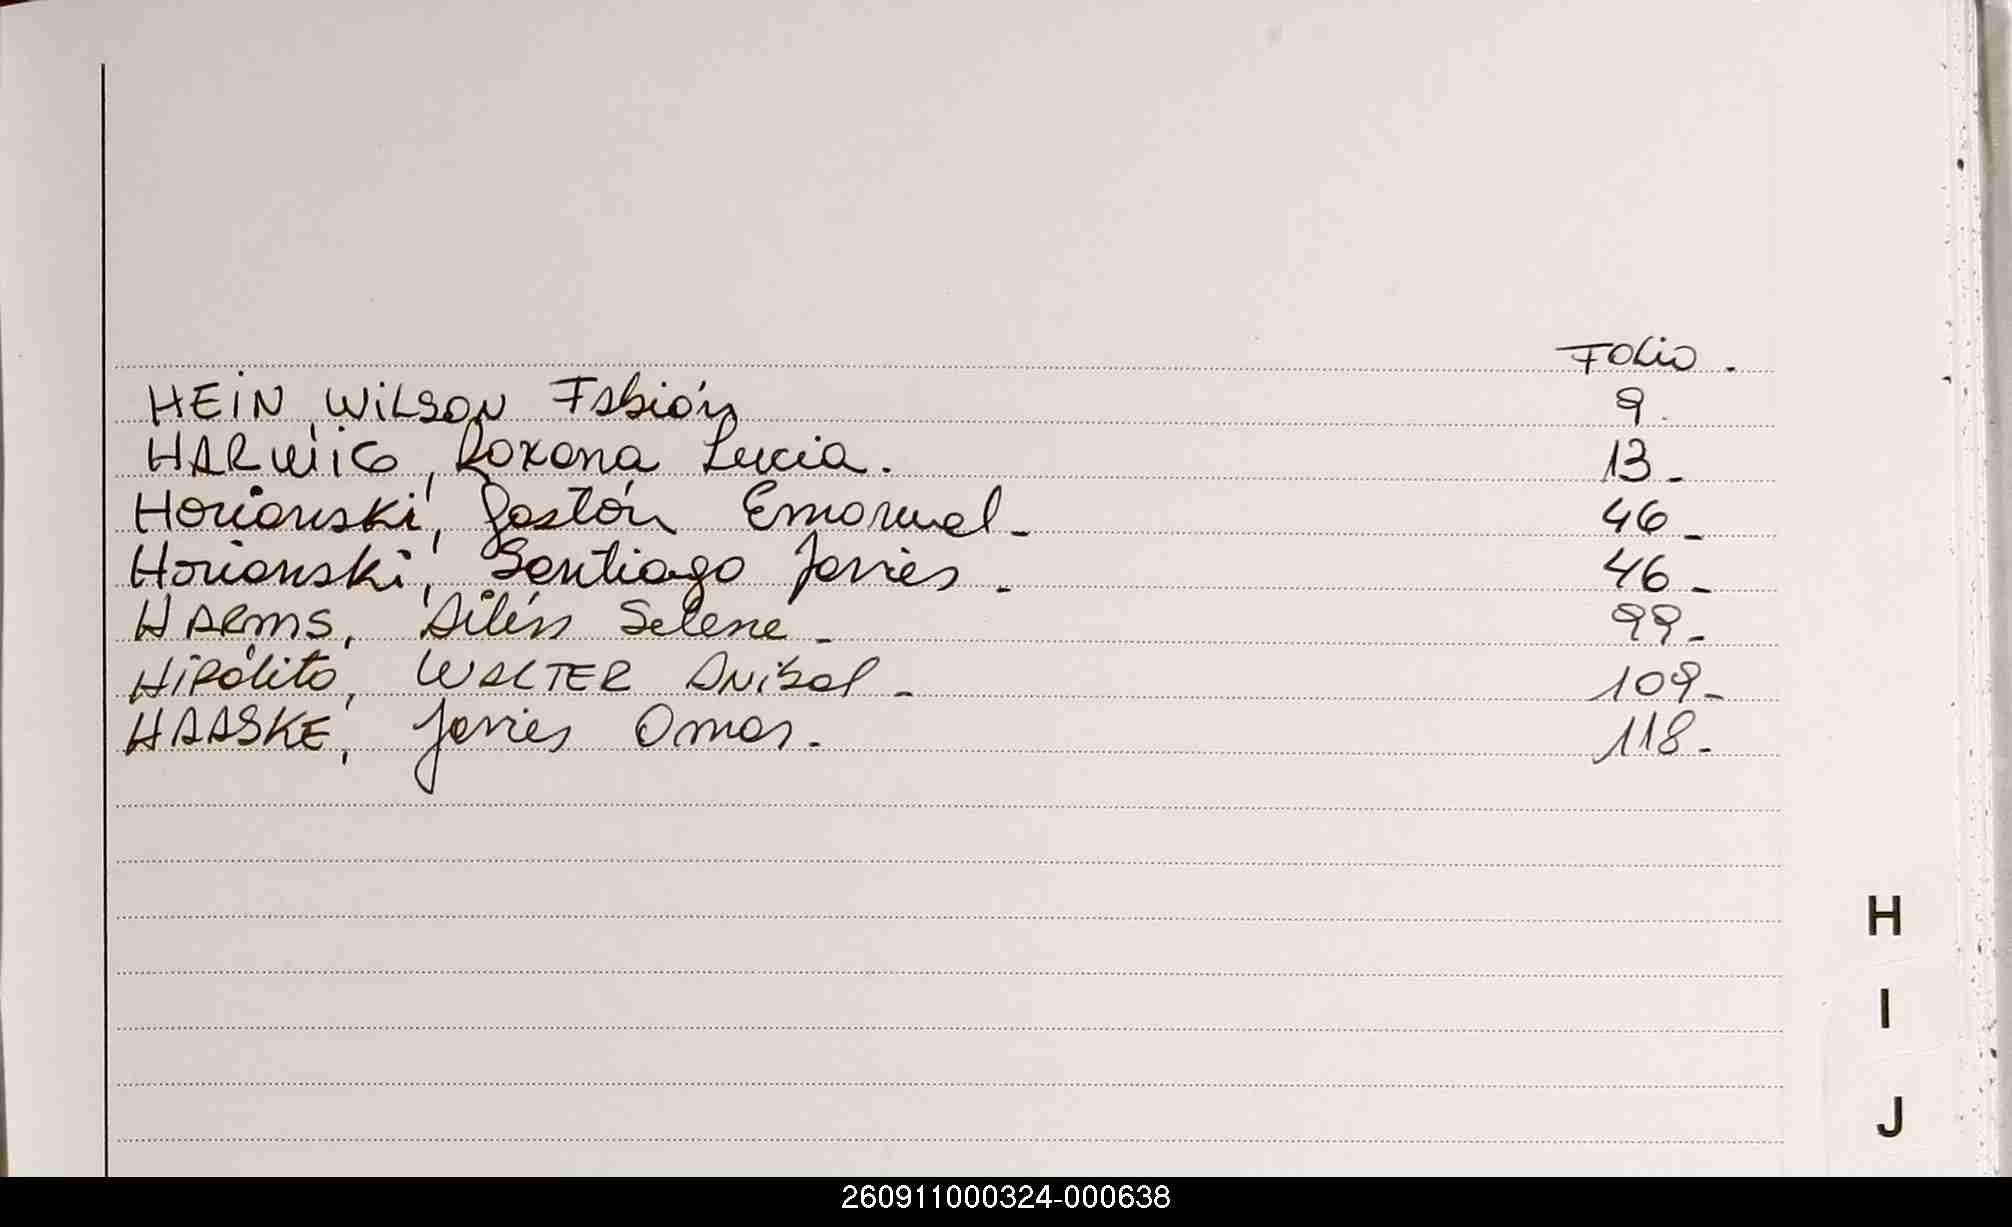 Folio.
HEIN, WILSON Fabián 9.
HARWIG, Roxana Lucia. 13-
Horianski, Gastón Emanuel- 46-
Horianski, Santiago Javier- 46-
HARMS, Ailén Selene- 99-
HIPÓLITO, WALTER Anibal- 109-
HAASKE, Javier Omar. 118-
H
I
J
260911000324-000638